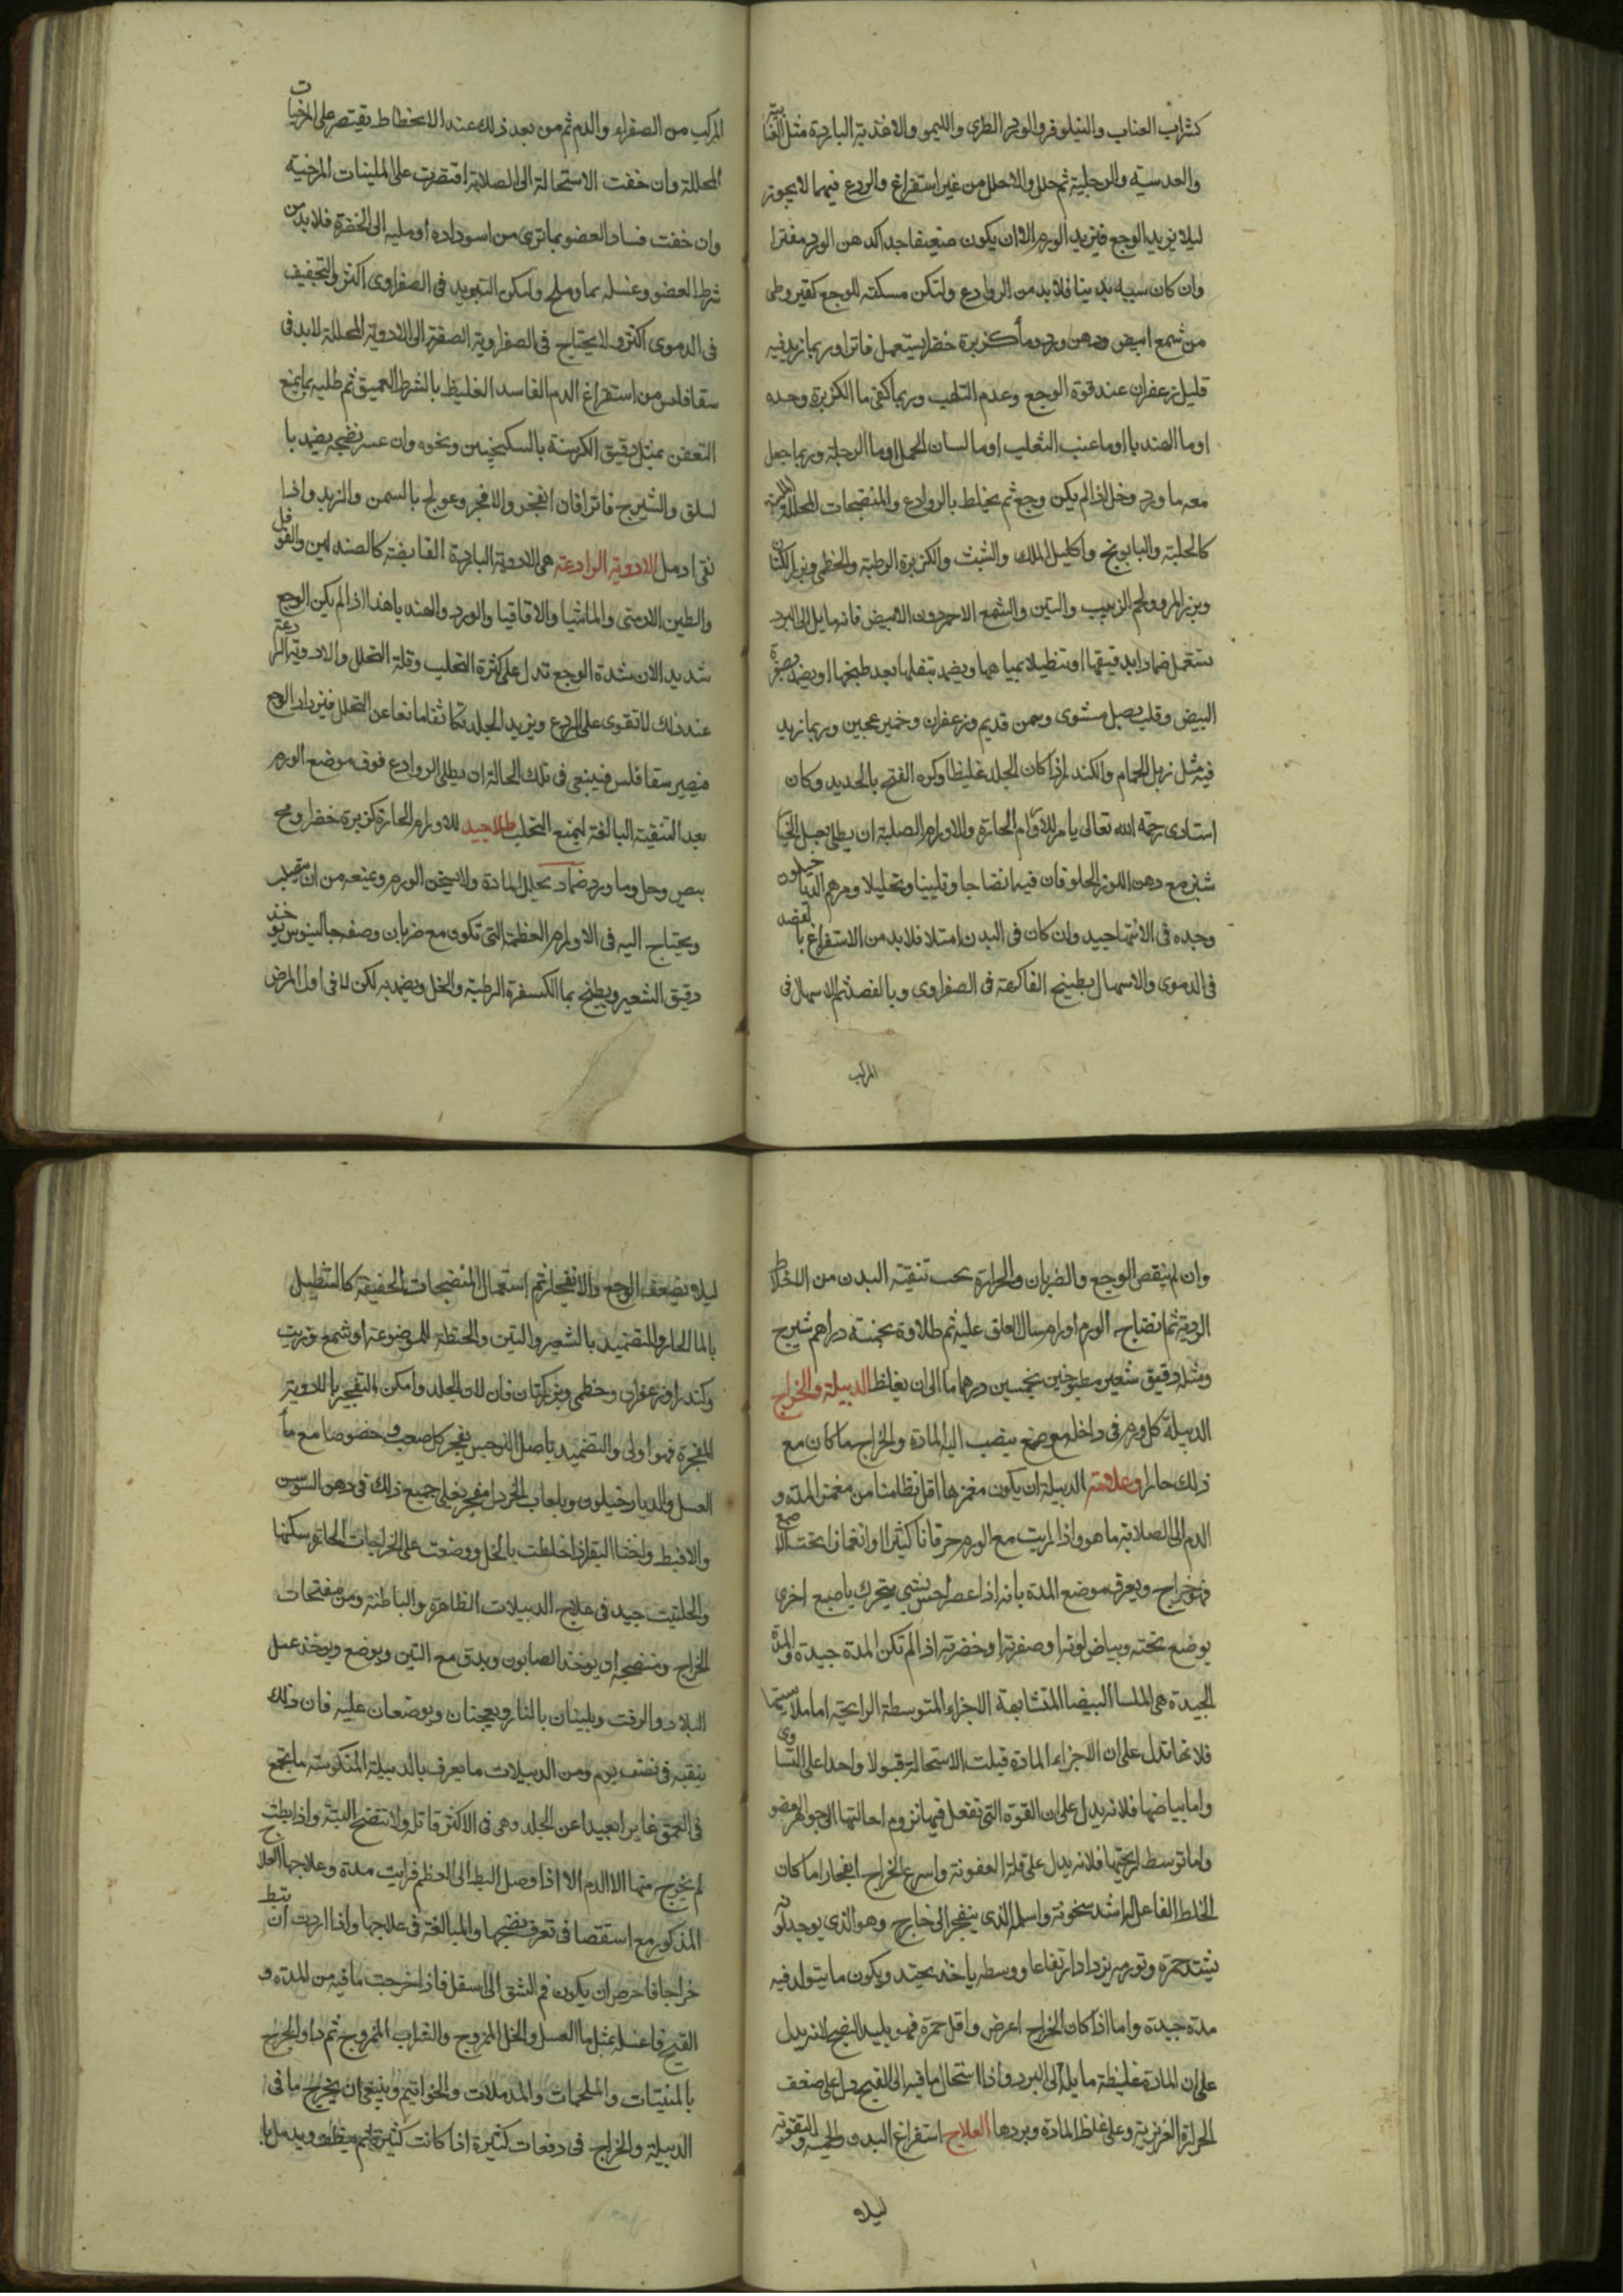 كشراب العناب والنيلوفر والورد الطرى والليمو والاغذية الباردة مثل القثايية
والعدسية والرجلية ثم حلل والاحلل من غير استفراغ والردع فيهما لا يجوز
ليلا يزيد الوجع فيزيد الورم الا ان يكون ضعيفا جدا كدهن الورد مفترا
وان كان سببه بدنيا فلا بد من الروادع ولتكن مسكنة للوجع كقيروطى
من شمع ابيض ودهن ورد وماء كزبرة خضرا يستعمل فاترا وربما زيد فيه
قليل زعفران عند قوة الوجع وعدم التلهب وربما كفى ما الكزبرة وحده
او ما الهندبا او ما عنب الثعلب او ما لسان الحمل او ما الرجلة وربما جعل
معه ما ورد وخل اذا لم يكن وجع ثم يخلط بالروادع والمنضجات المحللة
كالحلبة والبابونج واكليل الملك والشبث والكزبرة الرطبة والخطمى وبزر الكتان
وبزر المرو ولحم الزبيب والتين والشمع الاحمر دون الابيض فانه مايل الى البرد
تستعمل ضمادا بدقيقها او تنطيلا بمياهها ويضمد بتفلها بعد طبخها او يضمد بصفرة
البيض وقلب بصل مشوى وسمن قديم وزعفران وخمير عجين وربما زيد
فيه مثل زبل الحمام والكندر اذا كان الجلد غليظا وكره الفتح بالحديد وكان
استادى رحمه الله تعالى يامر للاورام الحارة والاورام الصلبة ان يطلى بعسل الخيار
شنبر مع دهن اللوز الحلو فان فيه انضاجا وتليينا وتحليلا ومرهم الدياخيلون
وحده فى الانتها جيد وان كان فى البدن امتلا فلا بد من الاستفراغ بالفصد
فى الدموى والاسهال بطبيخ الفاكهة فى الصفراوى وبالفصد ثم الاسهال فى
المركب
المركب من الصفراء والدم ثم من بعد ذلك عند الانحطاط يقتصر على المرخيات
المحللة وان خفت الاستحالة الى الصلابة اقتصرت على الملينات المرخية
وان خفت فساد العضو بما ترى من اسوداده او ميله الى الخضرة فلا بد من
شرط العضو وغسله بما وملح وليكن التبريد فى الصفراوى اكثر والتجفيف
فى الدموى اكثر ولا يحتاج فى الصفراوية الصفرة الى الادوية المحللة لا بد فى
سقاقلس من استفراغ الدم الفاسد الغليظ بالشرط العميق ثم طليه بما يمنع
التعفن بمثل دقيق الكرسنة بالسكنجبين ونحوه وان عسر نضجه يضمد با
لسلق والشيرج فاترا فان انفجر والا فجر وعولج بالسمن والزبد واذا
نقى ادمل الادوية الرادعة هى الادوية الباردة القابضة كالصندلين والفوفل
والطين الارمنى والماميثا والاقاقيا والورد والهندبا هذا اذا لم يكن الوجع
شديد الان شدة الوجع تدل على كثرة التحلب وقلة التحلل والادوية الرادعة
عند ذلك لا تقوى على الردع ويزيد الجلد تكاثفا مانعا عن التحلل فيزداد الوجع
فيصير سقاقلس فينبغى فى تلك الحالة ان يطلى الروادع فوق موضع الورم
بعد التنقية البالغة ليمنع التحلب طلا جيد للاورام الحارة كزبرة خضرا ومح
بيض وخل وما ورد ضماد يحلل المادة ولا يسخن الورم ويمنعه من ان يتصلب
ويحتاج اليه فى الاورام العظيمة التى تكون مع ضربان وصفه جالينوس يوخذ
دقيق الشعير ويطبخ بما الكسفرة الرطبة والخل ويضمد به لكن لا فى اول المرض
وان لم ينقص الوجع والضربان والحرارة يجب تنقية البدن من الاخلاط
الردية ثم انضاج الورم او ارسال العلق عليه ثم طلاوه بخمسة دراهم شيرج
ومثله دقيق شعير مطبوخين بخمسين درهما ما الى ان يغلظ الدبيلة والخراج
الدبيلة كل ورم فى داخله موضع ينصب اليه المادة والخراج ما كان مع
ذلك حارا وعلامة الدبيلة ان يكون مغمزها اقل تطامنا من مغمز المدة و
الدم الى الصلابة ما هو واذا رايت مع الورم حرقانا كثيرا وانغمازا تحت الاصبع
فهو خراج ويعرف موضع المدة بانه اذا عصر احس بشى يتحرك باصبع اخرى
يوضع تحته وبياض لونها وصفرتها وخضرتها اذا لم تكن المدة جيدة والمدة
الجيدة هى الملسا البيضا المتشابهة الاجزاء المتوسطة الرايحة اما ملاستها
فلانها تدل على ان الاجزاء المادة قبلت الاستحالة قبولا واحدا على التساوى
واما بياضها فلانه يدل على ان القوة التى تفعل فيها تروم احالتها الى جوهر العضو
واما توسط رايحتها فلانه يدل على قلة العفونة واسرع الخراج انفجارا ما كان
الخلط الفاعل له اشد سخونة واسلم الذى ينفجر الى خارج وهو الذى يوجد لونه
يشتد حمرة وتورمه يزداد ارتفاعا ووسطه ياخذ يحتد ويكون ما يتولد فيه
مدة جيدة واما اذا كان الخراج اعرض واقل حمرة فهو بليد النضج لانه يدل
على ان المادة غليظة مايلة الى البرد واذا استحال ما فيه الى القيح دل على ضعف
الحرارة الغريزية وعلى غلظ المادة وبردها العلاج استفراغ البدن والحمية والتقوية
ليلا
ليلا يضعف الوجع والانفجار ثم استعمال المنضجات الخفيفة كالتنطيل
بالما الحار والتضميد بالشعير والتين والحنطة الممضوغة او شمع وزيت
وكندر او زعفران وخطمى وبزر كتان فان لان الجلد وامكن التفجير بالادوية
المفجرة فهو اولى والتضميد باصل النرجس يفجر كل صعب وخصوصا مع ما
العسل والدياخيلون وبلعاب الخردل مفجر يغلى جميع ذلك فى دهن السوسن
والاقط واخثا البقر اذا خلطت بالخل ووضعت على الخراجات الحارة سكنها
والحلتيت جيد فى علاج الدبيلات الظاهرة والباطنة ومن مفتحات
الخراج ومنضجه ان يوخذ الصابون ويدق مع التين ويوضع ويوخذ عسل
البلادر والزفت ويلينان بالنار ويعجنان ويوضعان عليه فان ذلك
ينقبه فى نصف يوم ومن الدبيلات ما يعرف بالدبيلة المنكوسة ما يجمع
فى العمق غايرا بعيدا عن الجلد وهى فى الاكثر قاتل ولا تنضج البتة واذا بطت
لم يخرج منها الا الدم الا اذا وصل البط الى العظم فرايت مدة وعلاجها العلاج
المذكور مع استقصا فى تعرف نضجها والمبالغة فى علاجها واذا اردت ان يبط
خراجا فاحرص ان يكون فم الشق الى اسفل فاذا خرجت ما فيه من المدة و
القيح فاغسله بمثل ما العسل والخل الممزوج والشراب الممزوج ثم داو الجرح
بالمنبتات والملحمات والمدملات والخواتيم وينبغى ان يخرج ما فى
الدبيلة والخراج فى دفعات كثيرة اذا كانت كثيرة ثم ينظف ويدمل با